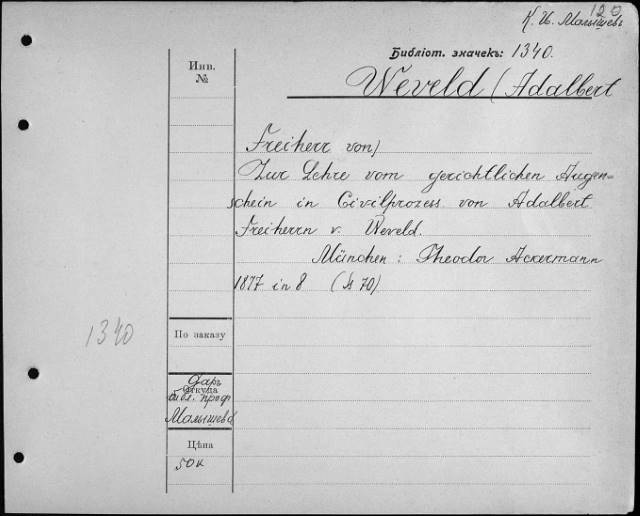 120
К. И. Малышевъ
Библіот. значекъ: 1340.
Weveld (Adalbert
Инв.
№
Freiherr von)
Zur Lehre vom gerichtlichen Augen=
schein in Civilprozess von Adalbert
Freiherrn v. Weveld.
München: Theodor Ackermann
1877 in 8 (s 70)
1340
По заказу
Даръ
Откуда
библ. проф
Малышева
Цѣна
50 к